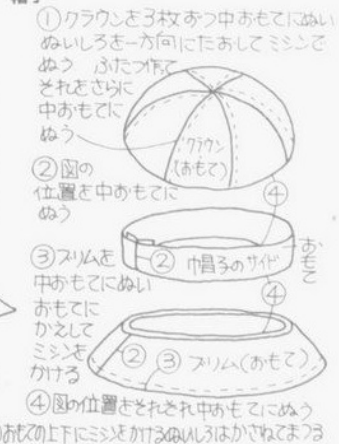 ① クラウンを3枚ずつ中おもてにぬい
ぬいしろを一方向にたおしてミシンで
ぬう ふたつ作って
それをさらに
中おもてに
ぬう
クラウン
(おもて)
② 図の
位置を中おもてに
ぬう
④
② 帽子のサイド
おもて
③ ブリムを
中おもてにぬい
おもてに
かえして
ミシンを
かける
④
② ③ ブリム(おもて)
④ 図の位置をそれぞれ中おもてにぬう
おもての上下にミシンをかけるぬいしろはかさねてまつる